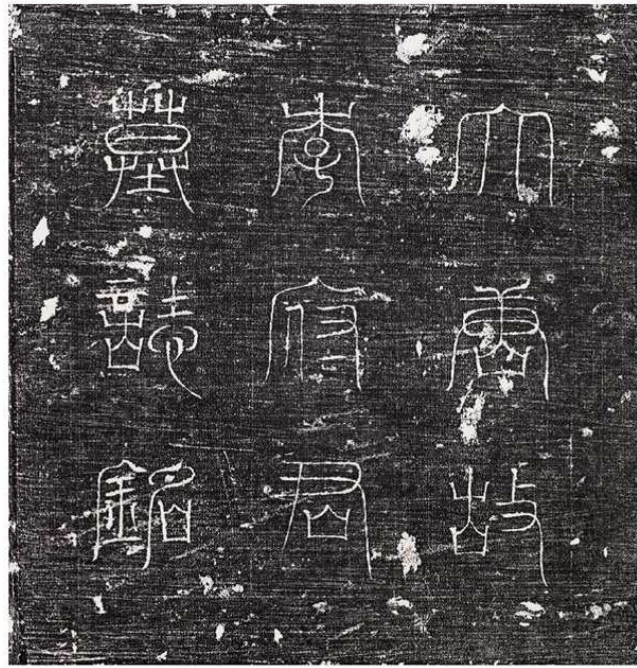 大唐故
李府君
墓誌銘